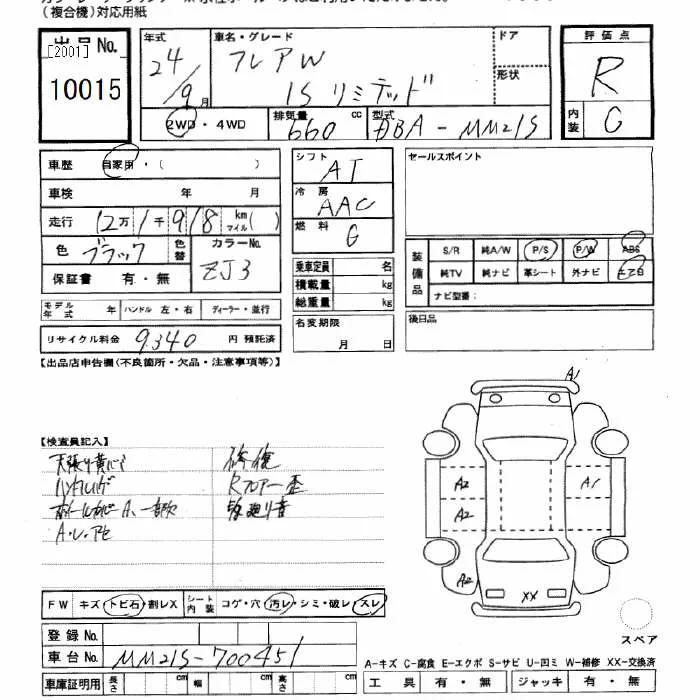 (複合機)対応用紙
出品No.
[2001]
10015
年式 24/9月
車名・グレード フレアW
1S リミテッド
ドア
形状
評価点 R
内装 G
2WD・4WD 排気量 660 cc 型式 DBA-MM21S
車歴 自家用・( )
車検 年 月
走行 12万1千918 km マイル( )
色 ブラック 色替 カラーNo. ZJ3
保証書 有・無
モデル年式 年 ハンドル 左・右 ディーラー・並行
リサイクル料金 9340 円 預託済
シフト AT
冷房 AAC
燃料 G
乗車定員 名
積載量 kg
総重量 kg
名変期限
月 日
セールスポイント
装備品 S/R 純A/W P/S P/W ABS
純TV 純ナビ 革シート 外ナビ エアB
ナビ型番:
後日品
【出品店申告欄(不良箇所・欠品・注意事項等)】
【検査員記入】
修復
Rフロアー歪
A1
A2 A1
A2
A2 XX
FW キズ・トビ石・割レX シート内装 コゲ・穴・汚レ・シミ・破レ・スレ
登録No.
車台No. MM21S-700451
車庫証明用 長さ cm 幅 cm 高さ cm
スペア
A-キズ C-腐食 E-エクボ S-サビ U-凹ミ W-補修 XX-交換済
工具 有・無 ジャッキ 有・無